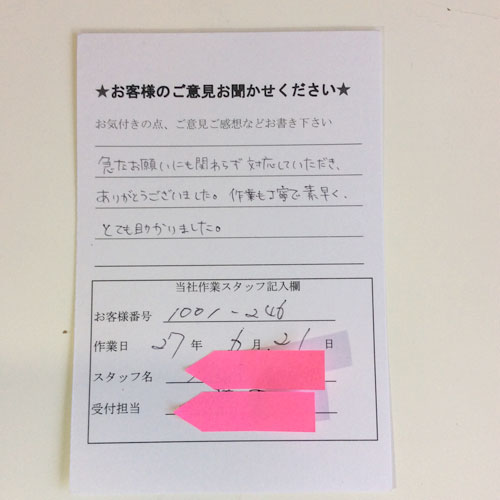 ★お客様のご意見お聞かせください★
お気付きの点、ご意見ご感想などお書き下さい
急なお願いにも関わらず対応していただき、
ありがとうございました。作業も丁寧で素早く、
とても助かりました。
当社作業スタッフ記入欄
お客様番号 1001-246
作業日 27 年 6 月 21 日
スタッフ名
受付担当